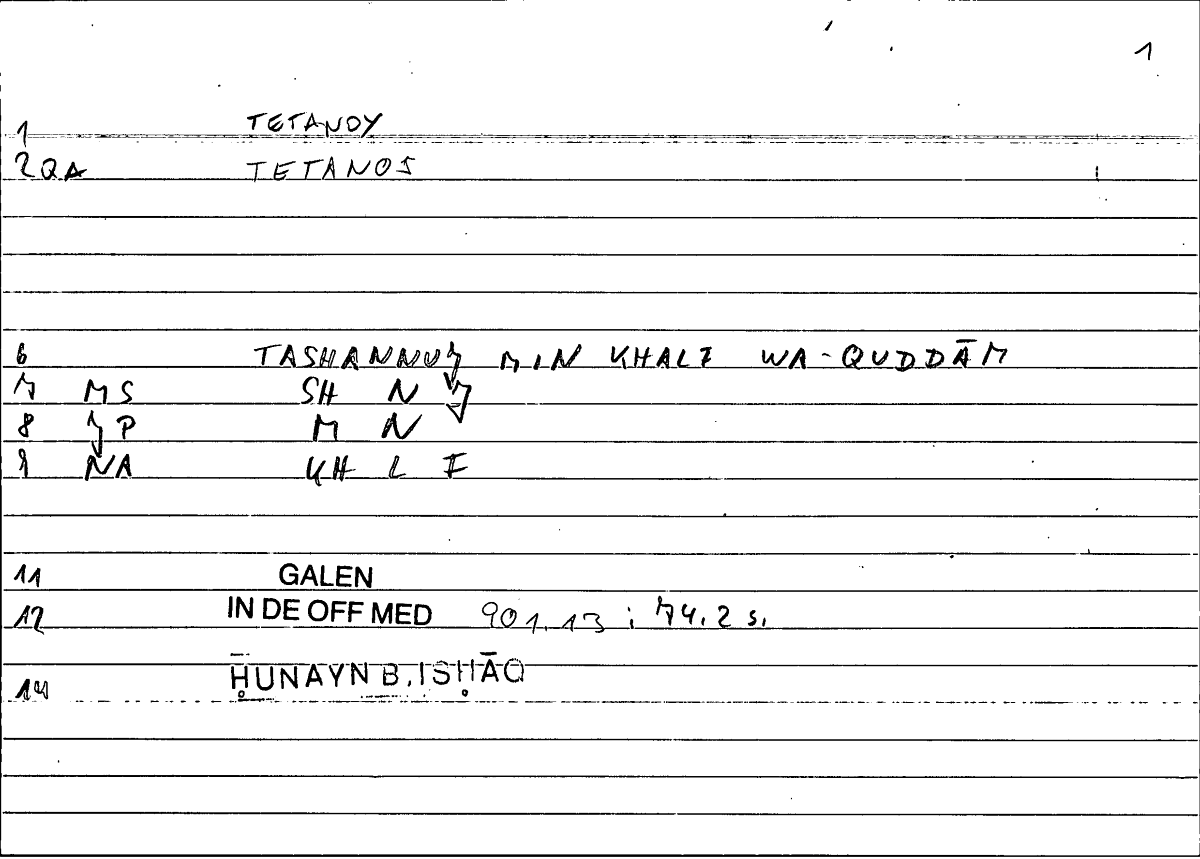 1
1 TETANOY
2 QA TETANOS
6 TASHANNUJ MIN KHALF WA-QUDDĀM
7 MS SH N J
8 JP M N
9 NA KH L F
11 GALEN
12 IN DE OFF MED 901.13 ; 74.2 s.
14 ḤUNAYN B. ISḤĀQ